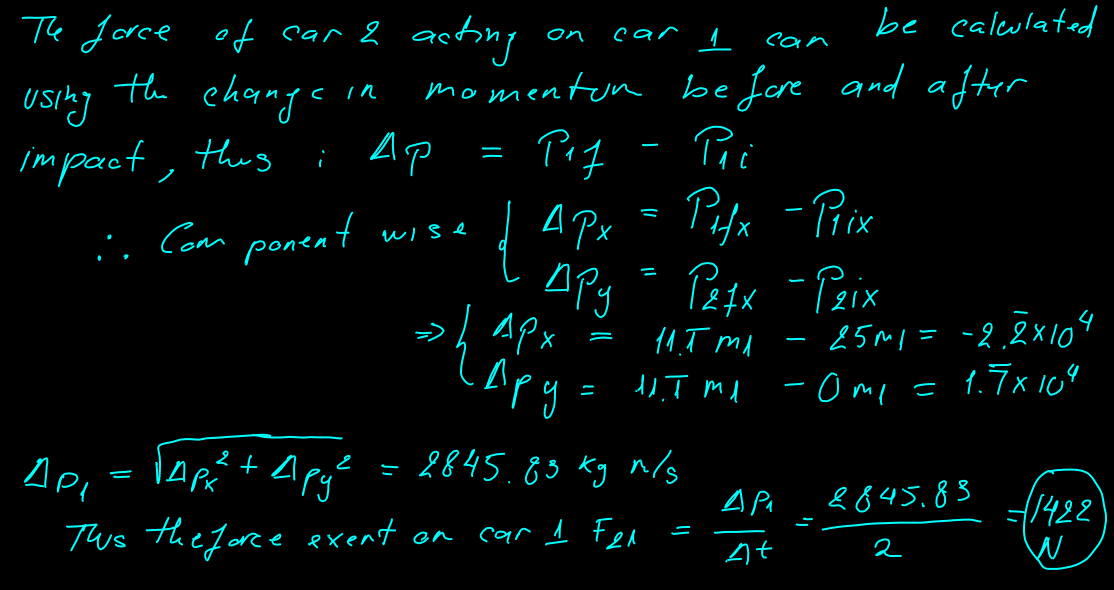 The force of car 2 acting on car 1 can be calculated
using the change in momentum before and after
impact, thus : Δp = P1f - P1i
∴ Component wise { Δpx = P1fx - P1ix
Δpy = P2fx - P2ix
⇒ { Δpx = 11.1̄ m1 - 25m1 = -2.2̄×10^4
Δpy = 11.1̄ m1 - 0m1 = 1.7̄×10^4
ΔP1 = √(Δpx² + Δpy²) = 2845.83 kg m/s
Thus the force exent on car 1 F21 = ΔP1/Δt = 2845.83/2 = 1422 N